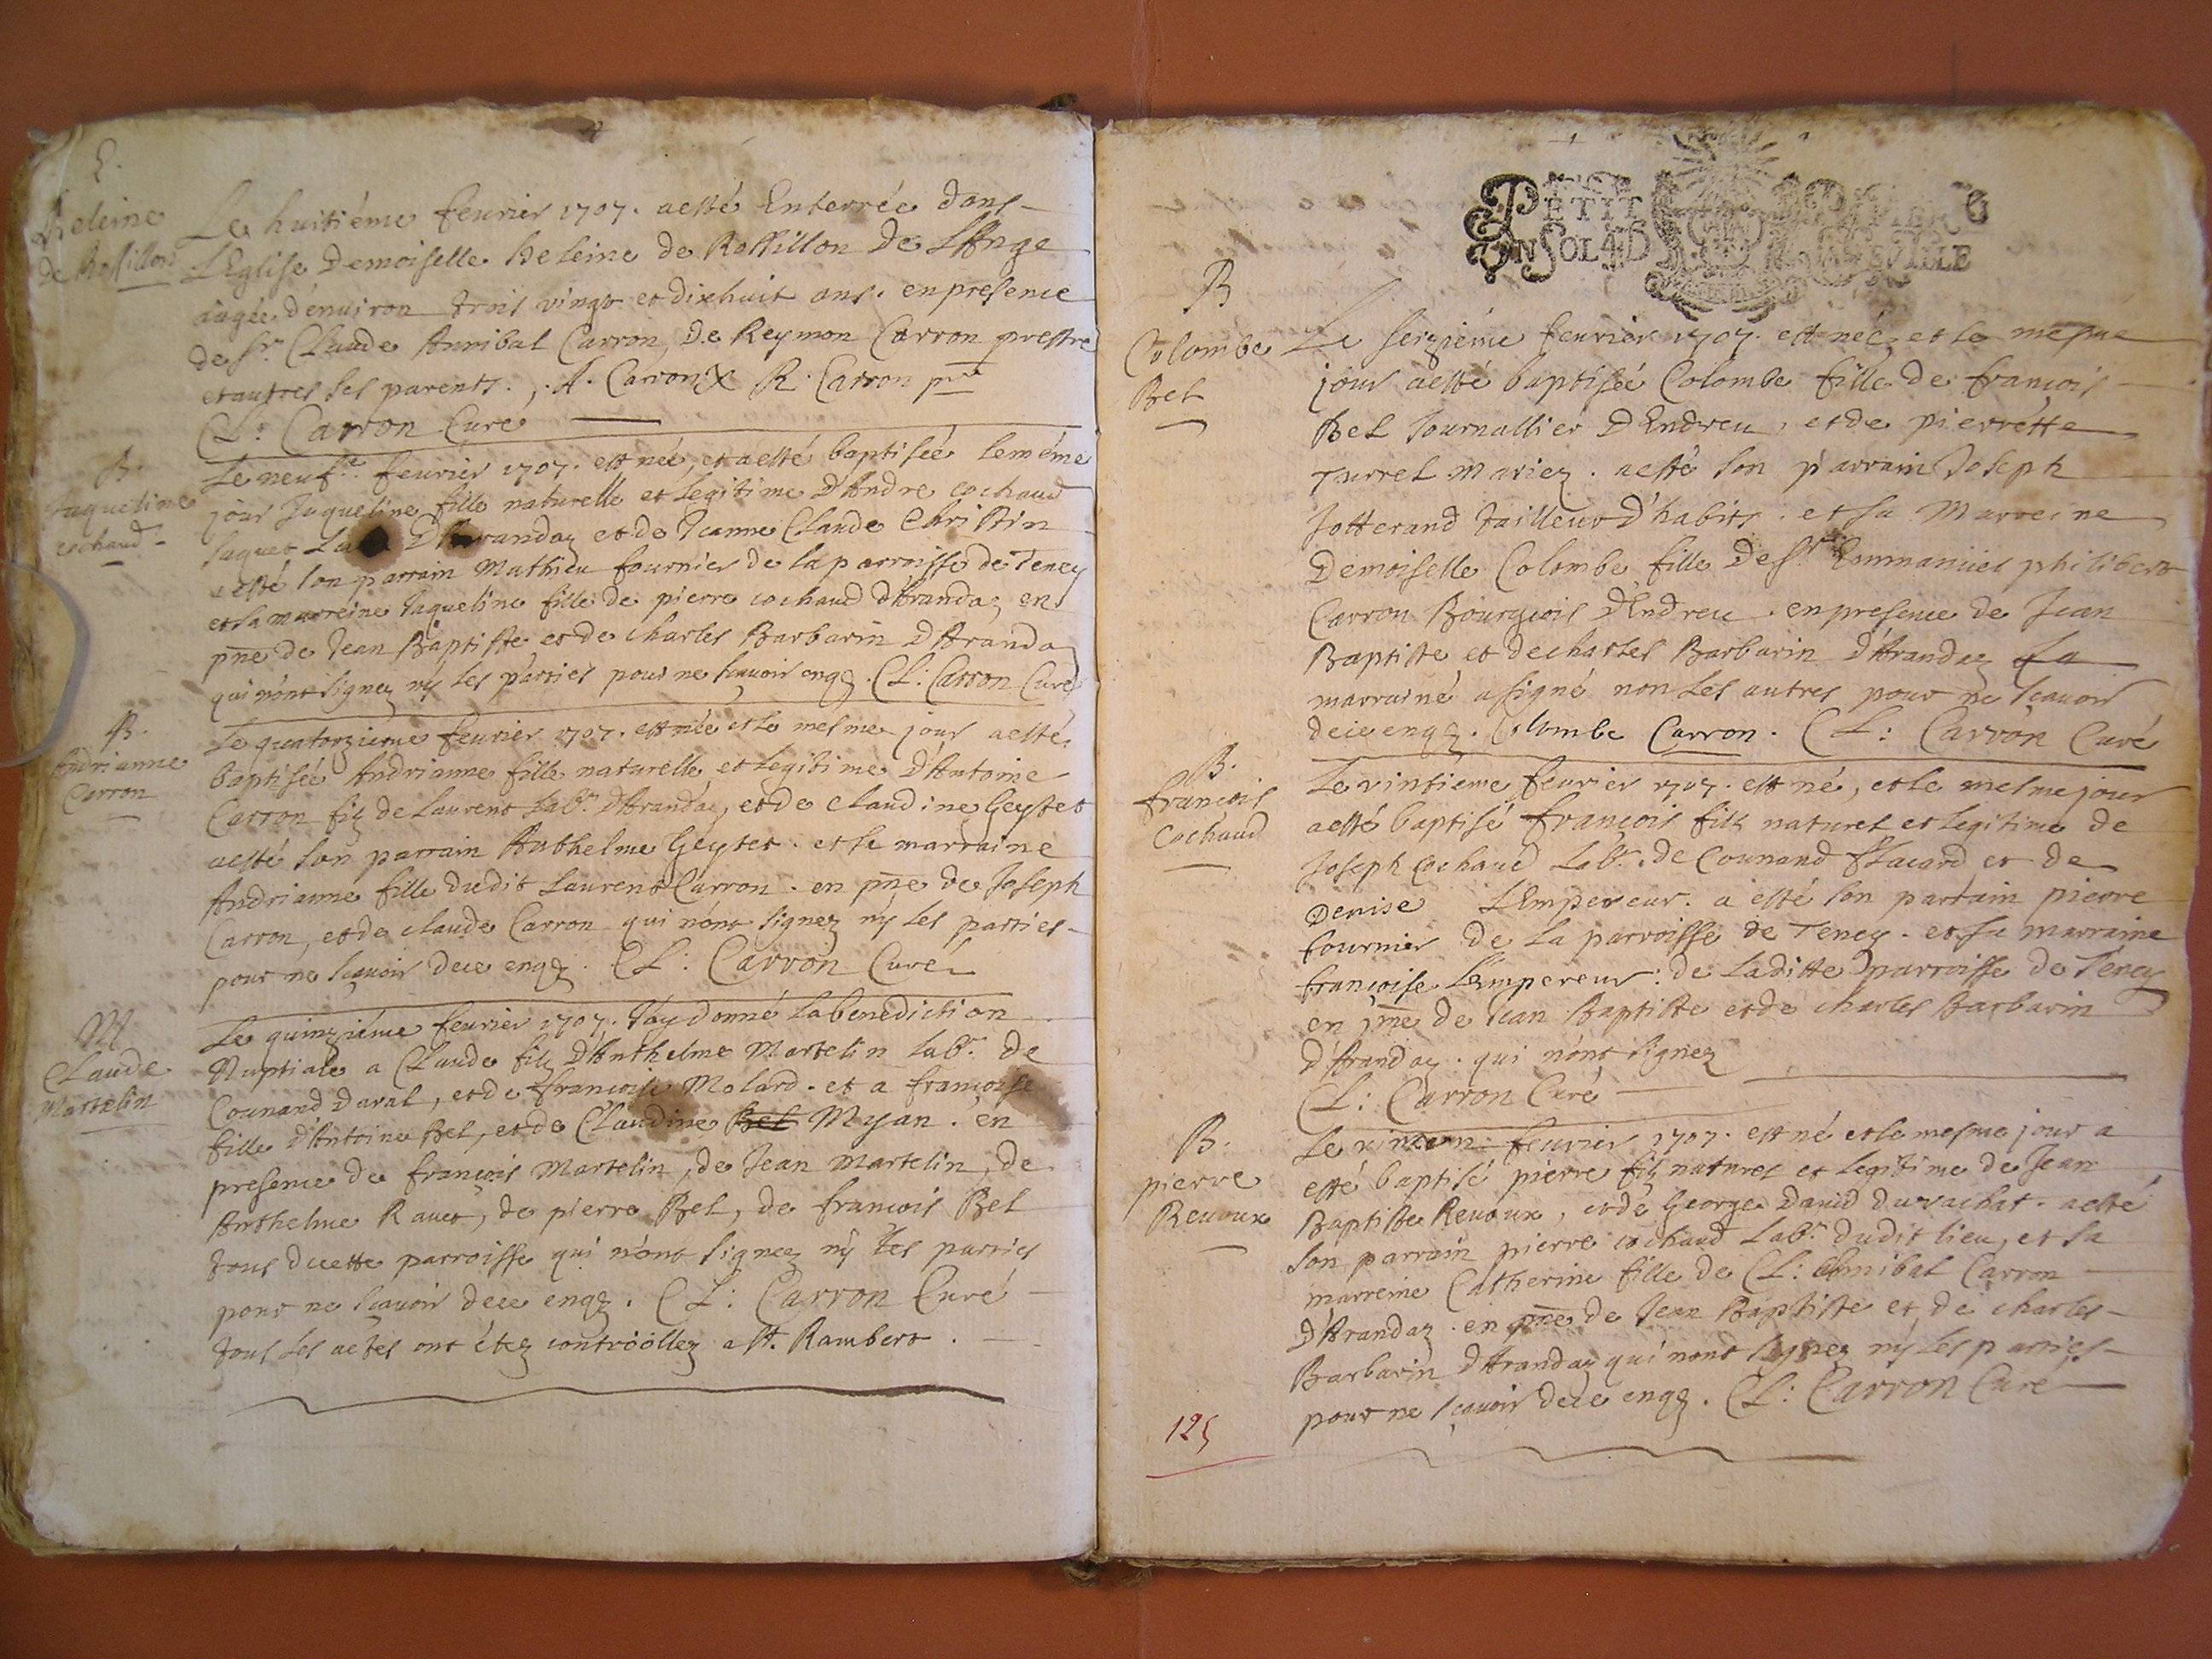 E.
Heleine
de Rossillon
Le huitiéme feurier 1707. a esté Enterrée dans
L'Eglise Demoiselle heleine de Rossillon De L'Ange
augée d'enuiron trois vingt et dixhuit ans. en presence
de Sr. Claude Annibal Carron, De Reymon Carron prestre
et autres ses parents. A. Carron R. Carron ptre
CL: Carron Curé
B.
Jaqueline
cochaud
Le neufe. feurier 1707. est née, et a esté baptisée le méme
jour Jaqueline fille naturelle et legitime D'Andre cochaud
Jaquet D'Arandaz et de Jeanne Claude Christin
a esté son parrain Mathieu fournier de la parroisse de Teney
et sa marreine Jaqueline fille de pierre cochaud d'Arandaz en
pñe de Jean Baptiste et de charles Barbarin D'Aranda
qui n'ont signez ny les parties pour ne sçavoir enqz. CL: Carron Curé
B.
Andrianne
Carron
Le quatorzieme feurier 1707. est née et le mesme jour a esté
baptisée Andrianne fille naturelle et legitime D'Antoine
Carron fiz de Laurent Labr. D'Arandaz, et de claudine Geytet
a esté son parrain Anthelme Geytet. et se marraine
Andrianne fille dudit Laurent Carron. en pñe de Joseph
Carron, et de claude Carron qui n'ont signez ny les parties
pour ne sçavoir de ce enqz. CL: Carron Curé
M
Claude
Martelin
Le quinziéme feurier 1707. J'ay donné La benediction
Nuptiale a Claude fiz D'Anthelme Martelin labr. de
Counand Daval, et de françoise Molard. et a françoise
fille d'Antoine Bel, et de Claudine Bel Myan. en
presence de françois Martelin, de Jean Martelin, de
Anthelme Rauet, de pierre Bel, de francois Bel
tous ducette parroisse qui n'ont signez ny les parties
pour ne sçavoir de ce enqz. CL: Carron Curé
tous les actes ont étez controöllez a St. Rambert.
PETIT PAPIER
UN SOL 4 D LE VILLE
B
Colombe
Bel
Le seizéme feurier 1707. est née, et le mesme
jour a esté baptisée Colombe fille de francois
Bel Journallier D'Endreu, et de pierrette
Turrel mariez. a esté son parrain Joseph
Jotterand Tailleur D'habits. et sa Marreine
Demoiselle Colombe fille De Sr. Emmanuel philibert
Carron Bourgeois d'Endreu. en presence de Jean
Baptiste et de charles Barbarin D'Arandaz La
marraine a signé non les autres pour ne scavoir
de ce enqz. Colombe Carron. CL: Carron Curé
B.
françois
Cochaud
Le vintieme feurier 1707. est né, et le mesme jour
a esté baptisé françois fils naturel et legitime de
Joseph cochaud Labr. de Counand et de
Denise L'Empereur. a esté son parrain pierre
fournier de la parroisse de Teney. et sa marraine
françoise L'empereur: de Laditte parroisse de Teney
en pñe de Jean Baptiste et de charles Barbarin
D'Arandaz. qui n'ont signez
CL: Carron Curé
B.
pierre
Reuoux
Le feurier 1707. est né et le mesme jour a
esté baptisé pierre fiz naturel et legitime de Jean
Baptiste Reuoux, et de George Dauid du vachat. a esté
son parrain pierre cochaud Labr. dudit lieu, et sa
marreine Catherine fille de CL: Annibal Carron
D'Arandaz. en pñe de Jean Baptiste et de charles
Barbarin D'Arandaz qui n'ont signez ny les parties
pour ne sçavoir de ce enqz. CL: Carron Curé
125